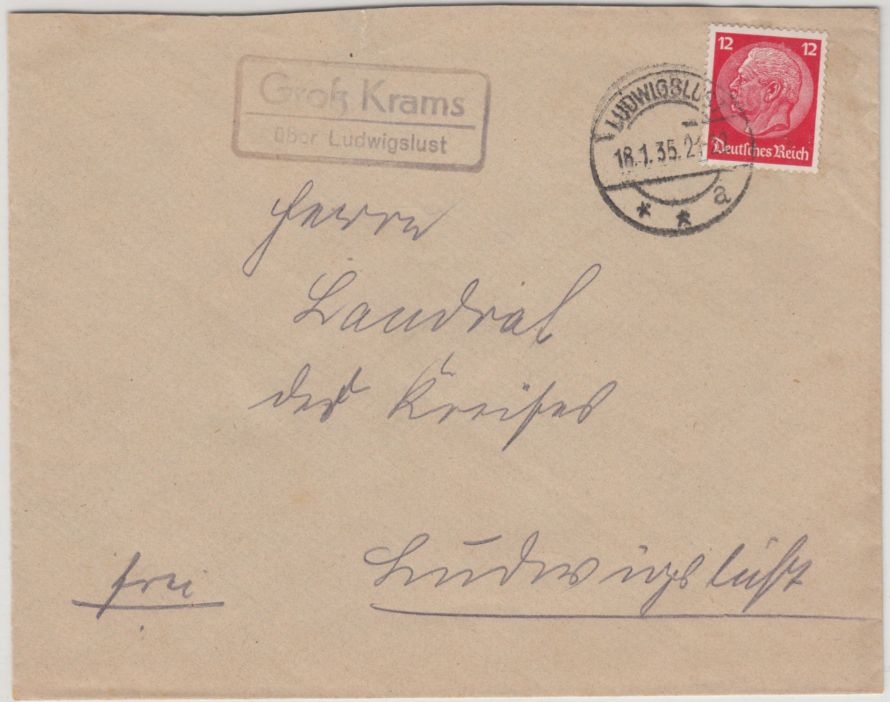 Groß Krams
über Ludwigslust
LUDWIGSLUST
18.1.35.21
* * a
12 12
Deutsches Reich
Herrn
Landrat
des Kreises
Ludwigslust
frei